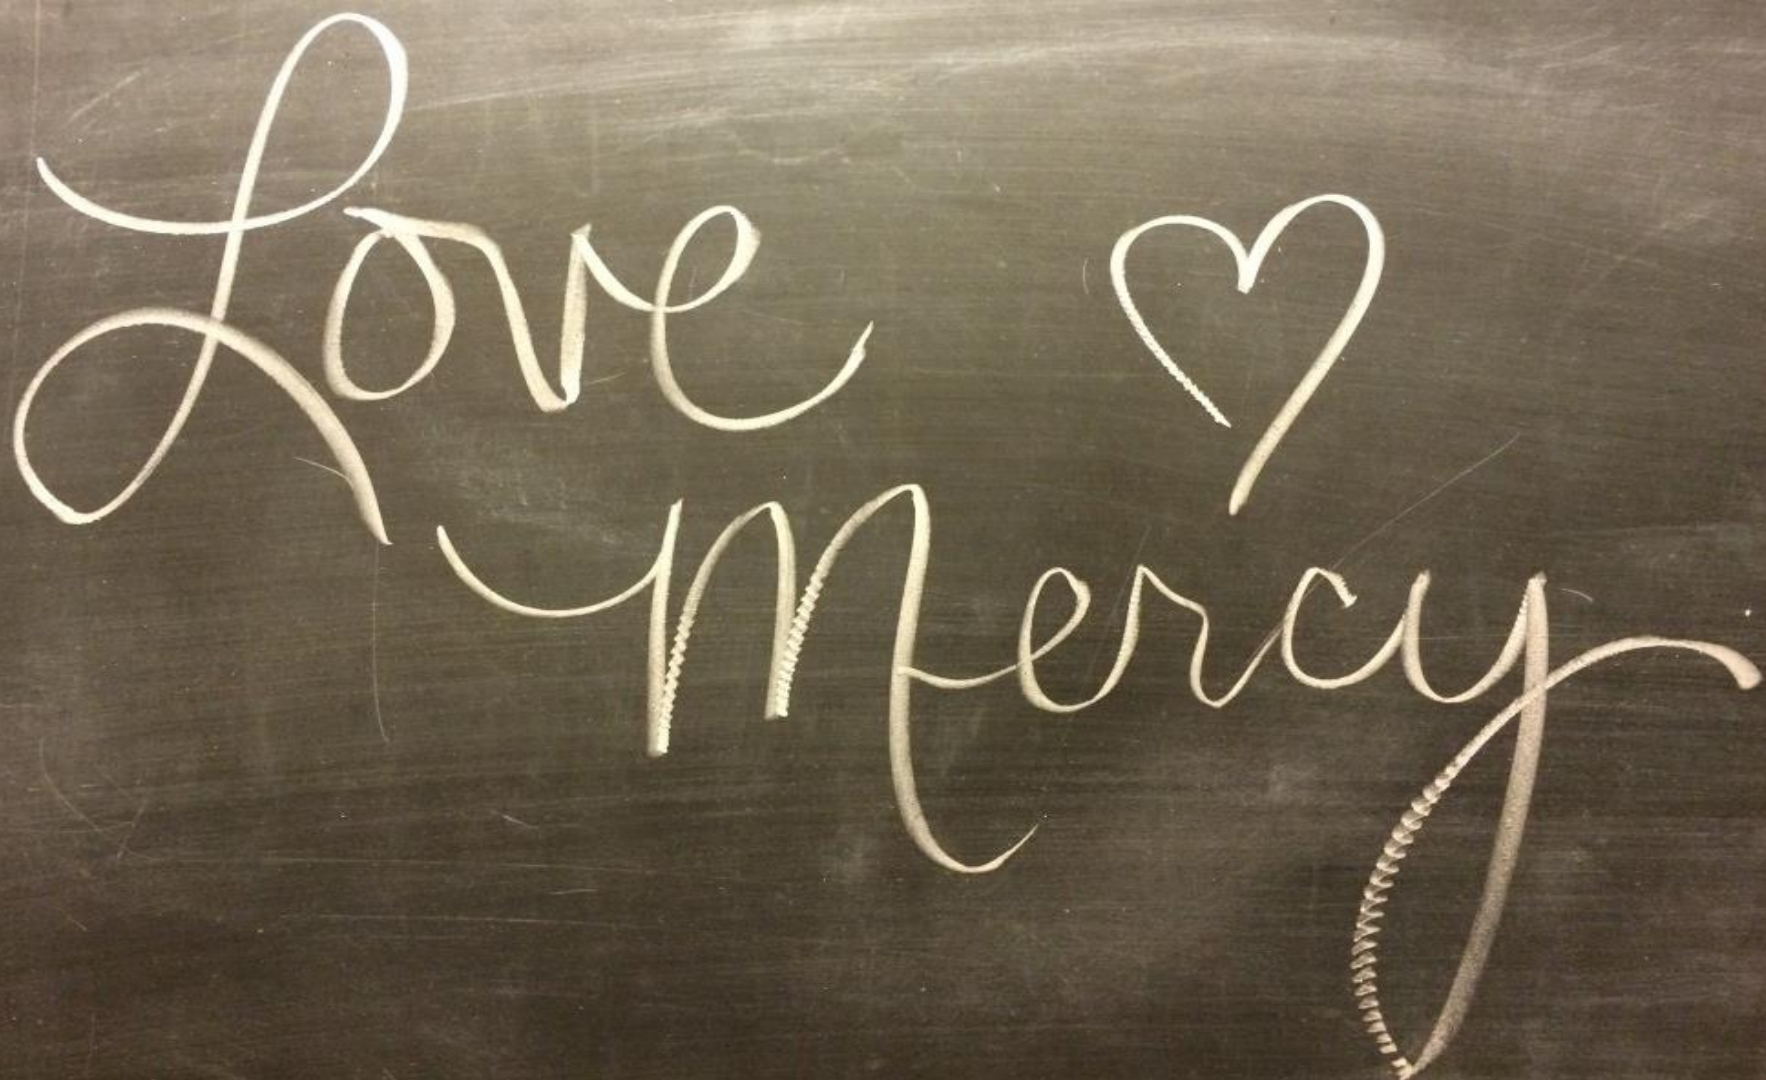 Love
Mercy